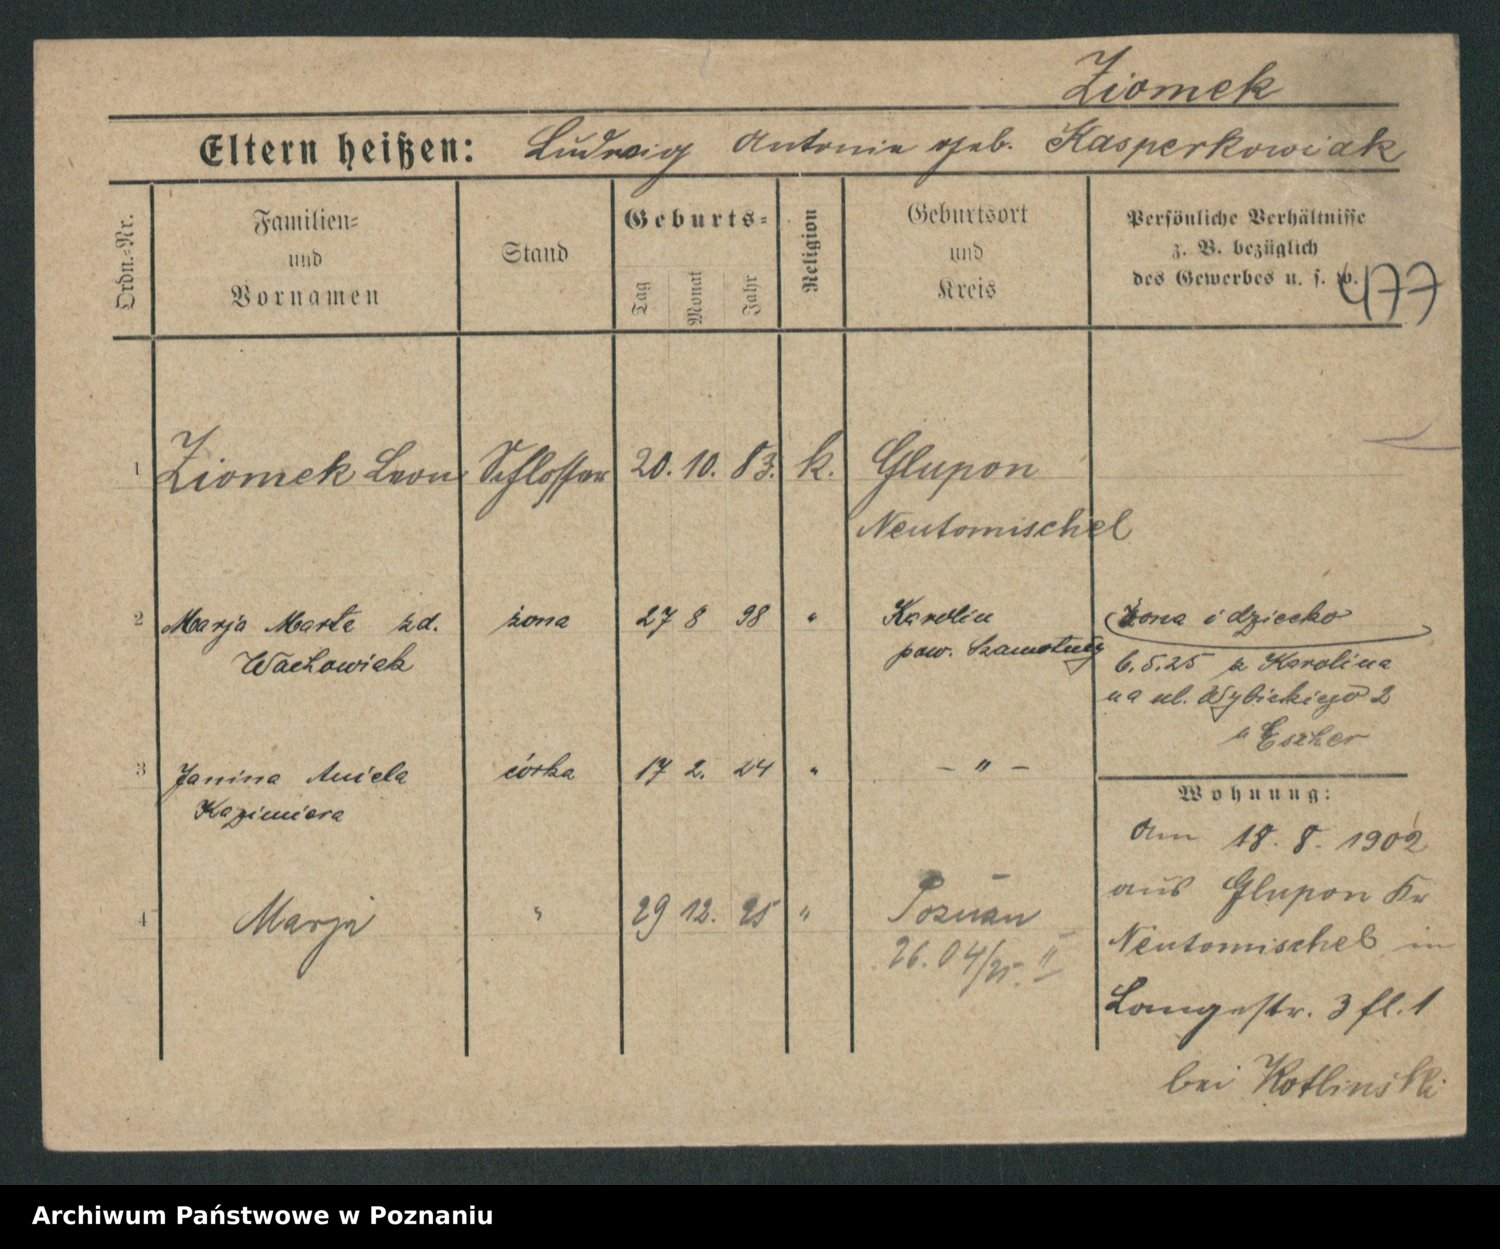 Ziomek
Eltern heißen: Ludwig Antonie geb. Kasperkowiak
Ordn.-Nr.
Familien-
und
Vornamen
Stand
Geburts-
Tag
Monat
Jahr
Religion
Geburtsort
und
Kreis
Persönliche Verhältnisse
z. B. bezüglich
des Gewerbes u. s. w.
477
1 Ziomek Leon Schlosser 20. 10. 83. k. Glupon
Neutomischel
2 Marja Marta zd. żona 27 8 98 " Karolin
Wachowiak pow. Szamotuły
żona i dziecko
6.5.25 z Karolina
na ul. Wybickiego 2
u Escher
3 Janina Aniela córka 17 2. 24 " – " –
Kazimiera
Wohnung:
am 18. 8. 1902
aus Glupon Kr
Neutomischel in
Langestr. 3 fl. 1
bei Kotlinski
4 Marja " 29 12. 25 " Poznań
26.04/25. II
Archiwum Państwowe w Poznaniu